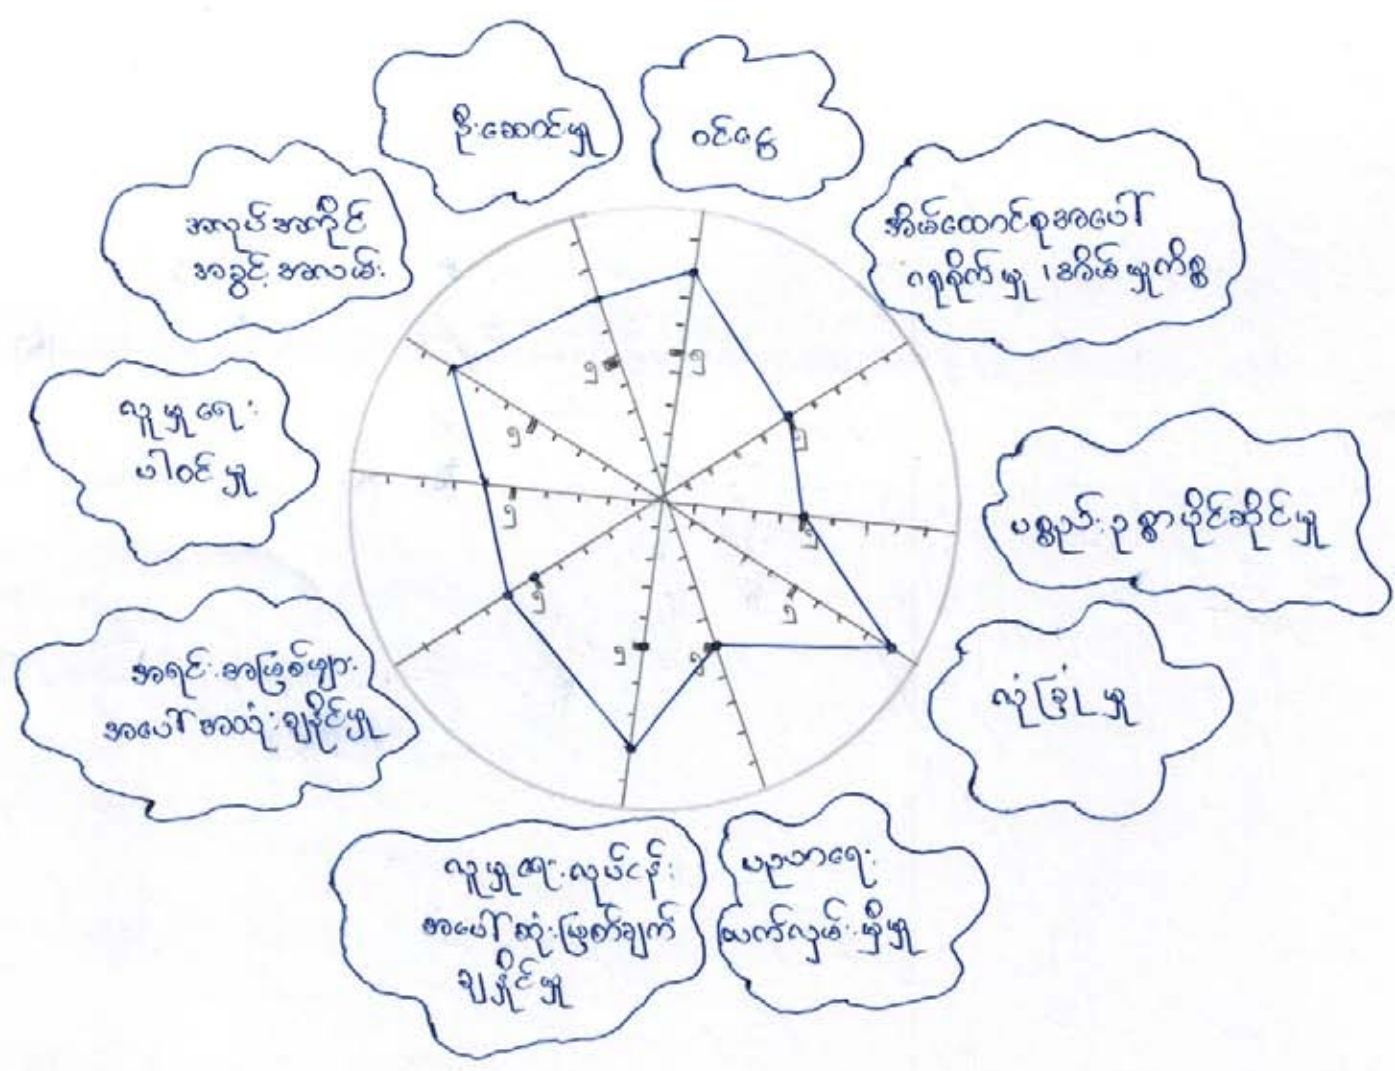 ဦးဆောင်မှု
ဝင်ငွေ
အိမ်ထောင်စုအပေါ်
ဂရုစိုက်မှု ၊ အိမ်မှုကိစ္စ
ပစ္စည်းဥစ္စာပိုင်ဆိုင်မှု
လုံခြုံမှု
ပညာရေး
ထက်မှု
လူမှုရေးလုပ်ငန်း
အပေါ်ဆုံးဖြတ်ချက်
ချနိုင်မှု
အရင်းအမြစ်များ
အပေါ်အသုံးချနိုင်မှု
လူမှုရေး
ပါဝင်မှု
အလုပ်အကိုင်
အခွင့်အလမ်း
၅
၅
၅
၅
၅
၅
၅
၅
၅
၅